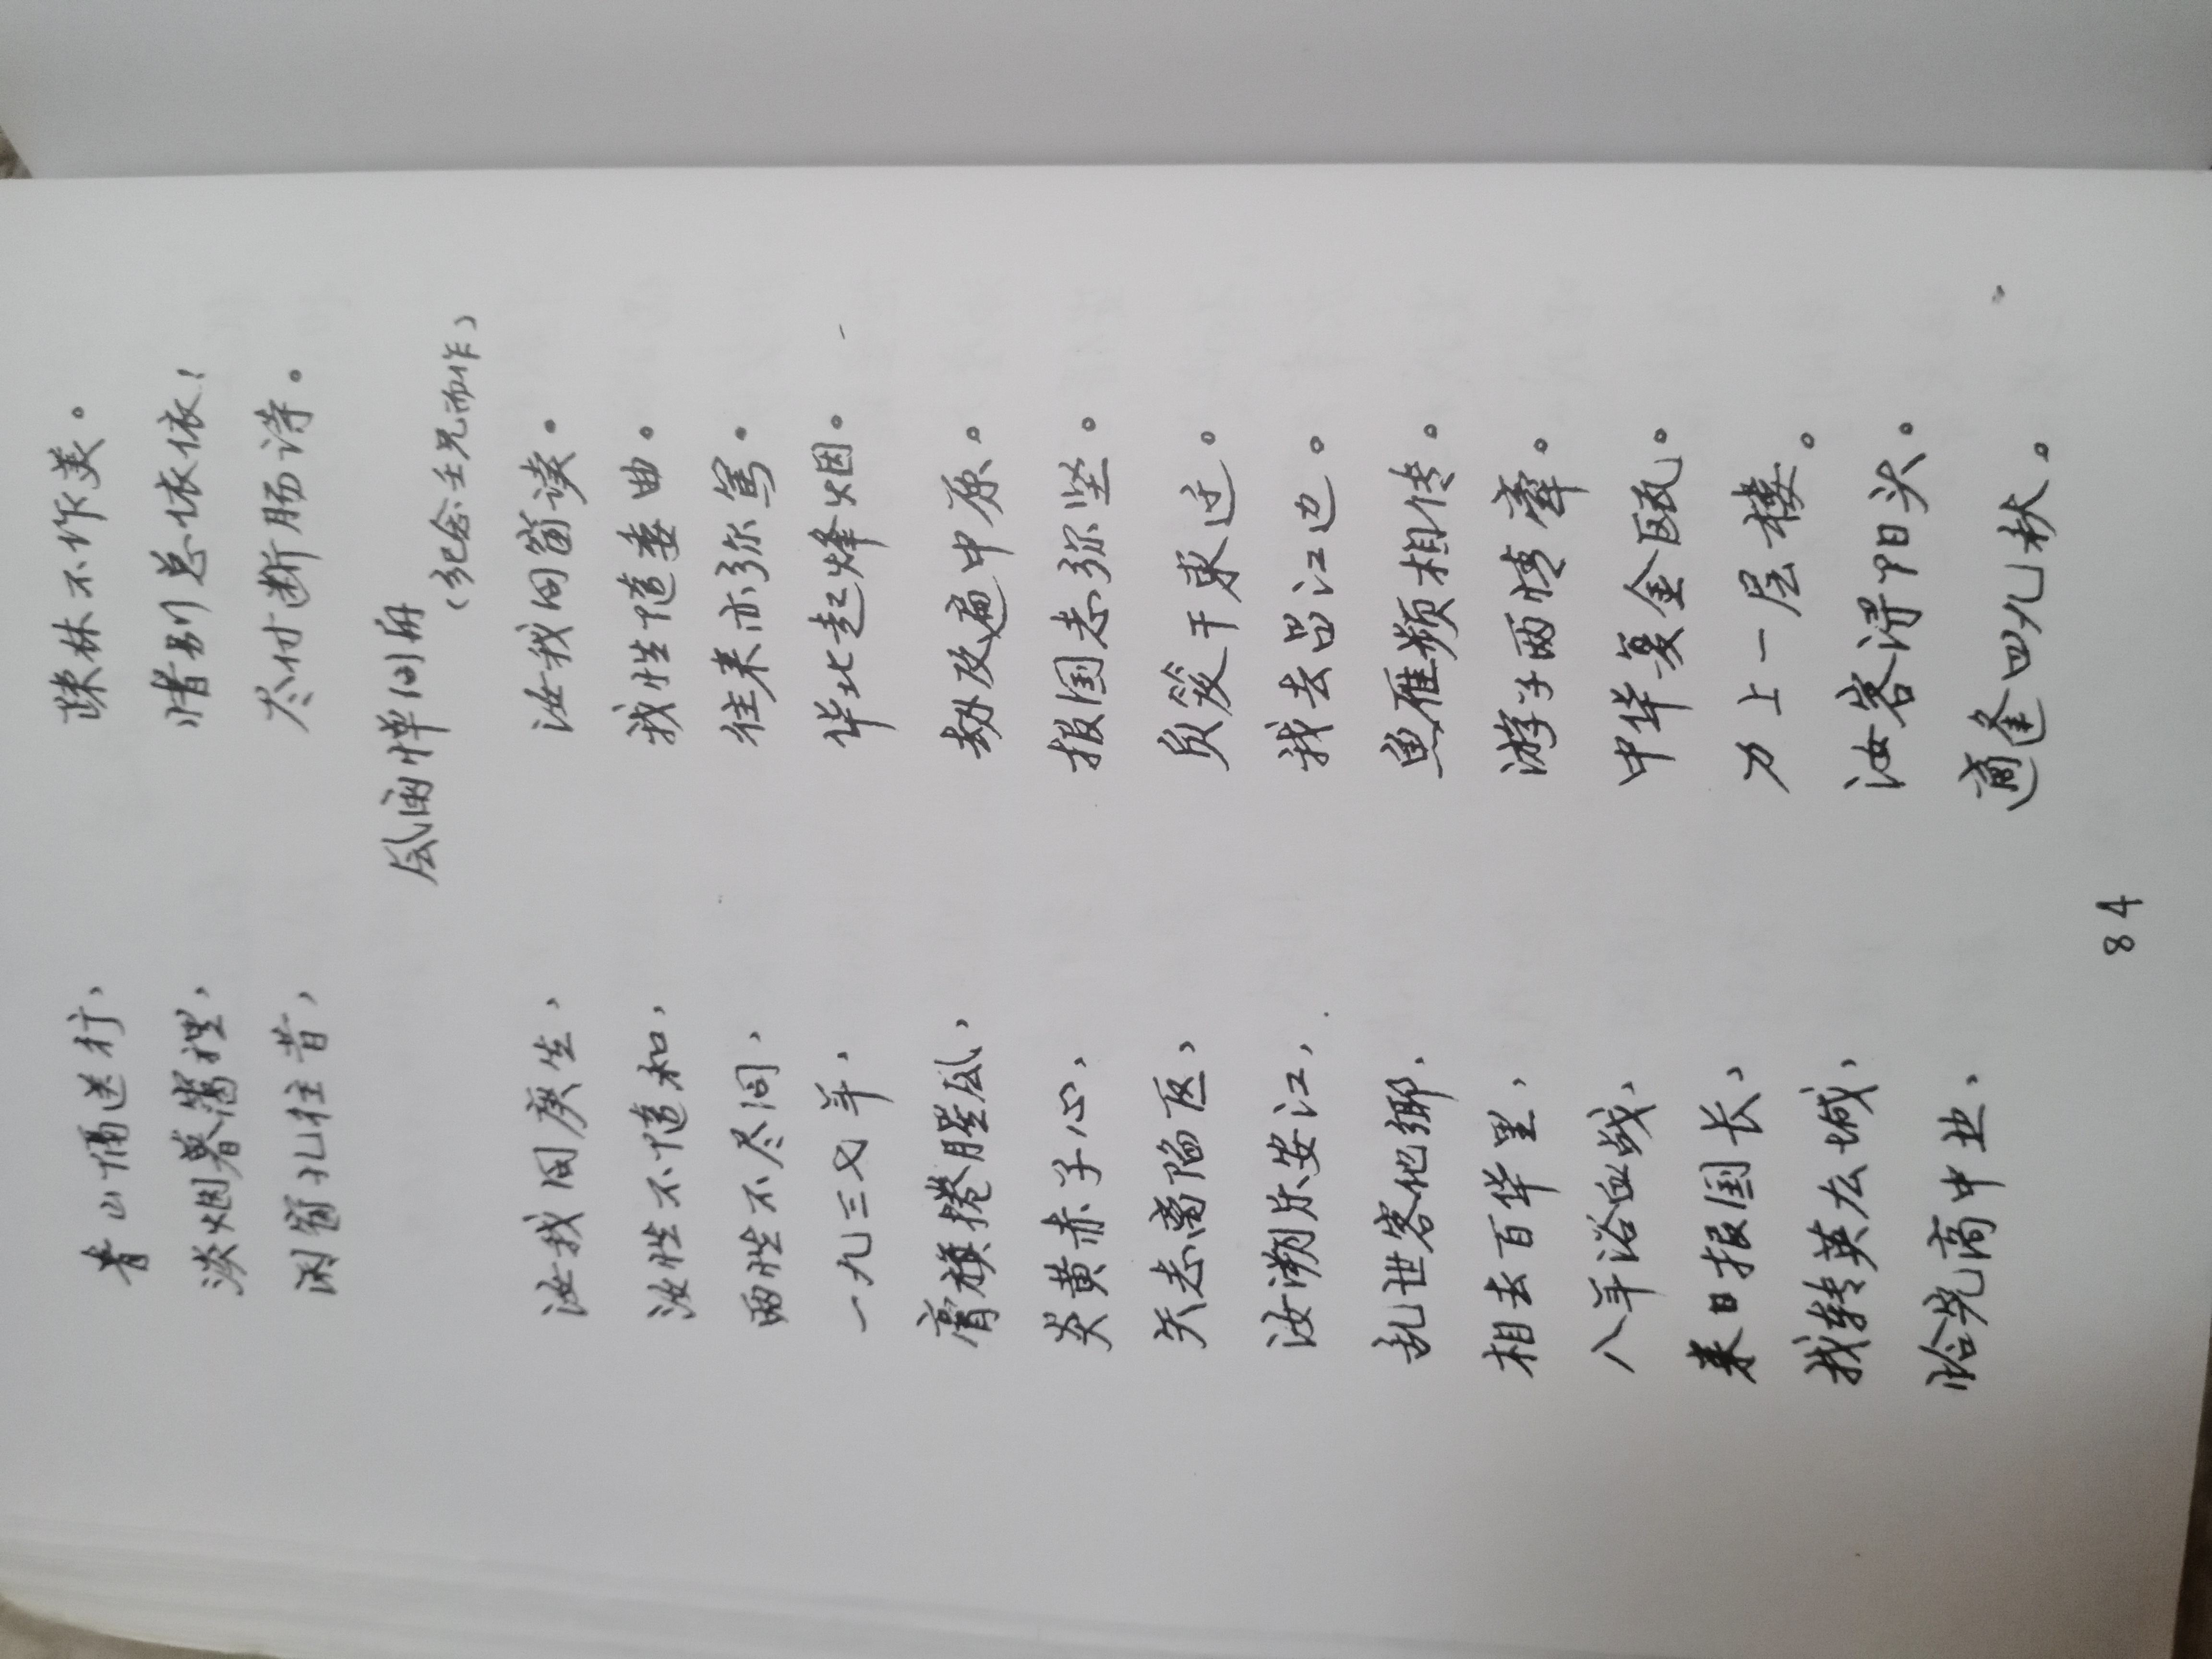 青山隔送行， 疎林不作美。
淡烟暮霭裡， 惜别总依依！
闲窗忆往昔， 尽付断肠诗。
风雨惮同舟
（纪念壬兄而作）
汝我同庚生， 汝我同窗读。
汝性不随和， 我性随委曲。
两性不尽同， 往来亦弥笃。
一九三七年， 华北起烽烟。
膏旗捲腥风， 劫及遍中原。
炎黄赤子心， 报国志弥坚。
矢志离陷区， 负笈于東过。
汝溯乐安江， 我去昌江边。
乱世客他鄉， 鱼雁频相传。
相去百华里， 游子两情牽。
八年浴血战， 中华复金瓯。
来日报国长， 力上一层楼。
我转英庙城， 汝客浔阳头。
恰完高中业， 適逢四九秋。
84